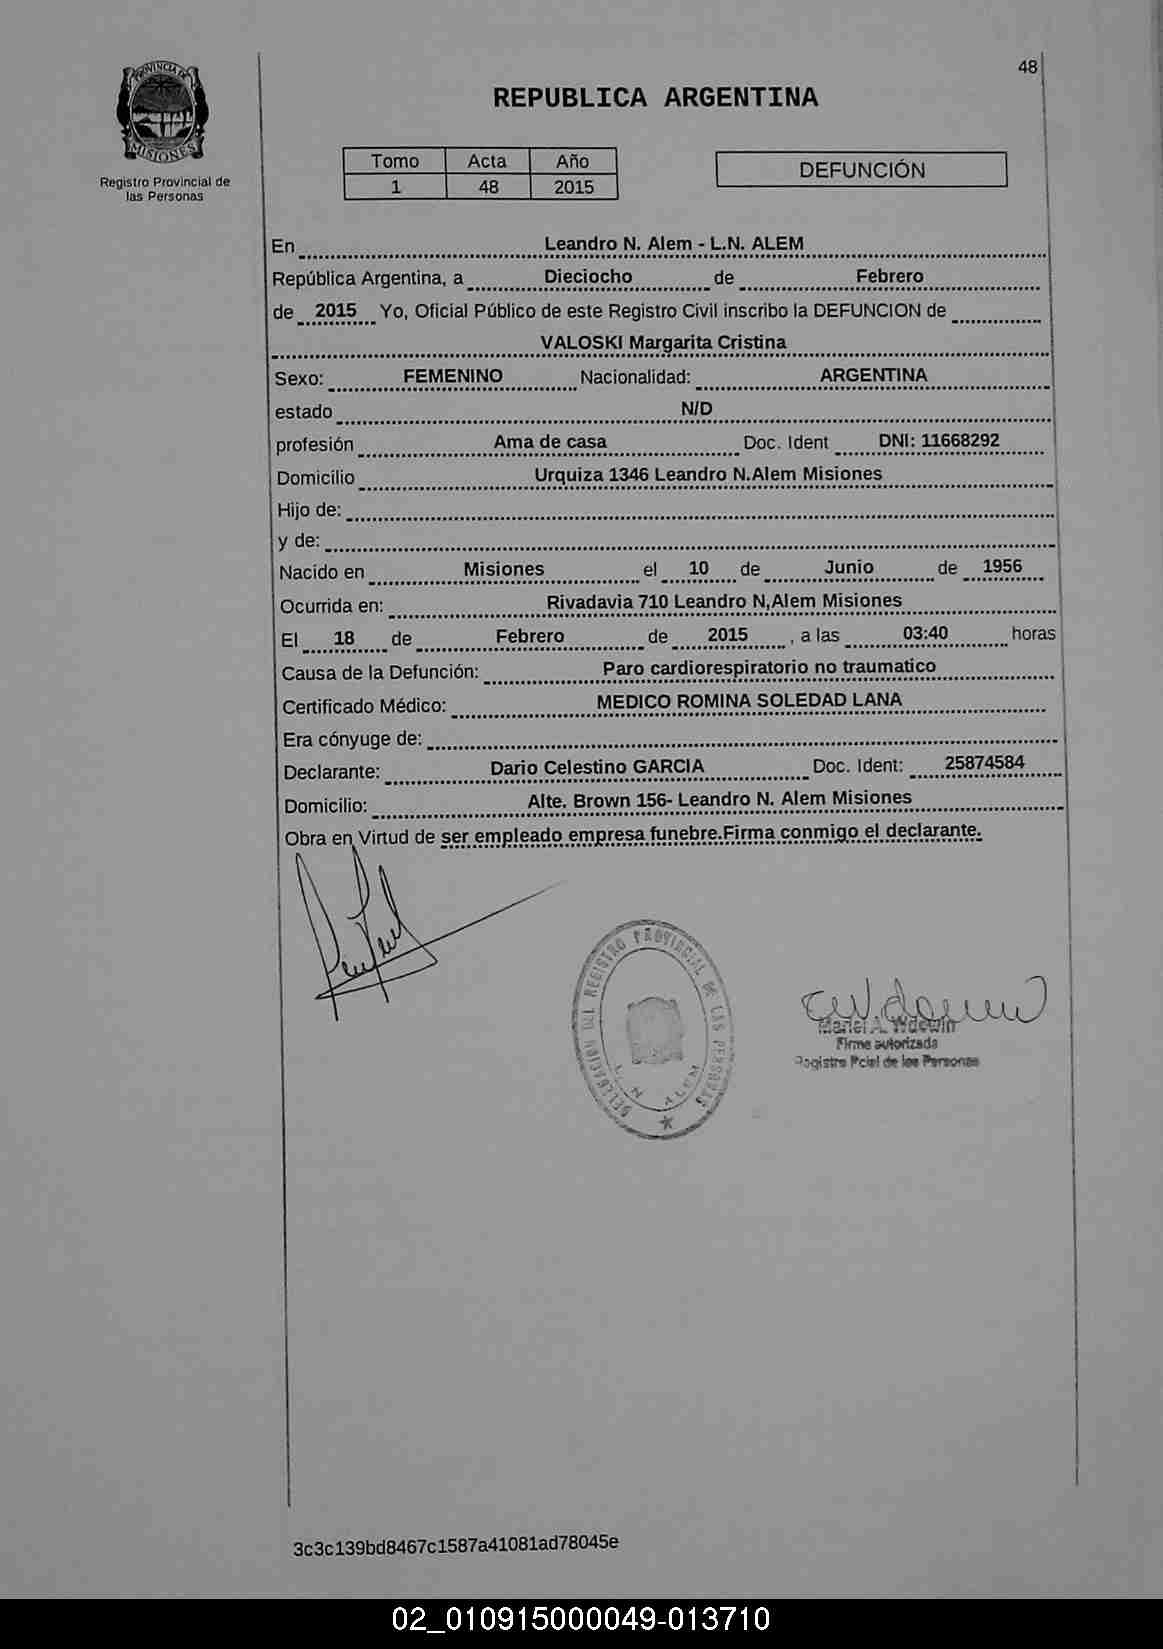 48
PROVINCIA DE
MISIONES
Registro Provincial de
las Personas
REPUBLICA ARGENTINA
Tomo Acta Año
1 48 2015
DEFUNCIÓN
En Leandro N. Alem - L.N. ALEM
República Argentina, a Dieciocho de Febrero
de 2015 Yo, Oficial Público de este Registro Civil inscribo la DEFUNCION de
VALOSKI Margarita Cristina
Sexo: FEMENINO Nacionalidad: ARGENTINA
estado N/D
profesión Ama de casa Doc. Ident DNI: 11668292
Domicilio Urquiza 1346 Leandro N.Alem Misiones
Hijo de:
y de:
Nacido en Misiones el 10 de Junio de 1956
Ocurrida en: Rivadavia 710 Leandro N,Alem Misiones
El 18 de Febrero de 2015 , a las 03:40 horas
Causa de la Defunción: Paro cardiorespiratorio no traumatico
Certificado Médico: MEDICO ROMINA SOLEDAD LANA
Era cónyuge de:
Declarante: Dario Celestino GARCIA Doc. Ident: 25874584
Domicilio: Alte. Brown 156- Leandro N. Alem Misiones
Obra en Virtud de ser empleado empresa funebre.Firma conmigo el declarante.
DELEGACION DEL REGISTRO PROVINCIAL DE LAS PERSONAS
L. N. ALEM
Mariel A.
Firma autorizada
Registro Pcial de las Personas
3c3c139bd8467c1587a41081ad78045e
02_010915000049-013710